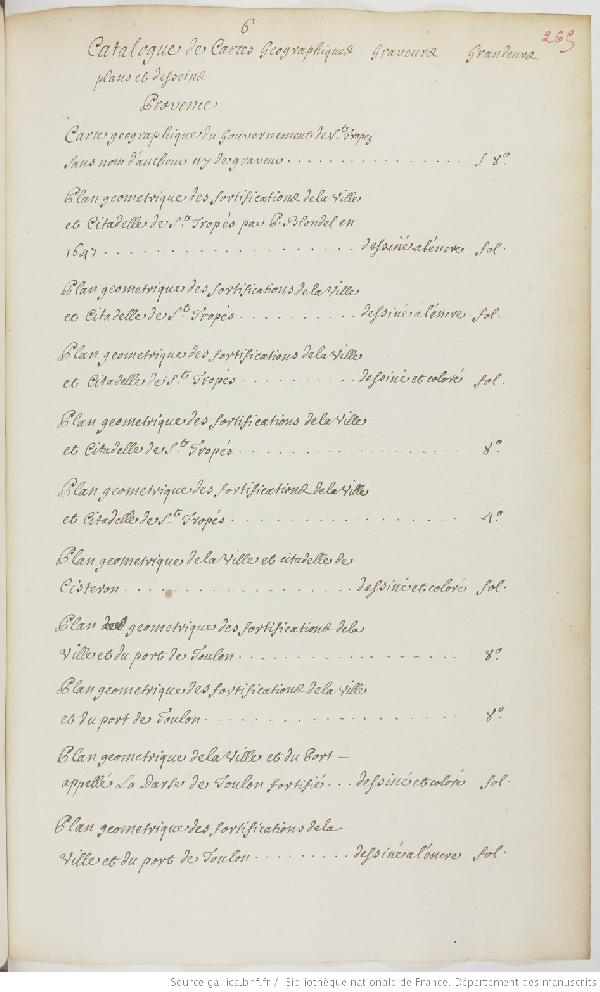 6
269
Catalogue de Cartes Geographiques Graveurs Grandeurs
plans et desseins
Provence
Carte geographique du Gouvernement de St. Tropez
sans nom d'autheur ny de graveur . . . . . . . . . . . . . . 8°
Plan geometrique des fortifications de la Ville
et Citadelle de St. Tropés par Blondel en
1647 . . . . . . . . . . . . . . . . . . . . dessiné a l'encre fol.
Plan geometrique des fortifications de la Ville
et Citadelle de St. Tropés . . . . . . . . . . . dessiné a l'encre fol.
Plan geometrique des fortifications de la Ville
et Citadelle de St. Tropés . . . . . . . . . . dessiné et coloré fol.
Plan geometrique des fortifications de la Ville
et Citadelle de St. Tropés . . . . . . . . . . . . . . . . . . 8°
Plan geometrique des fortifications de la Ville
et Citadelle de St. Tropés . . . . . . . . . . . . . . . . . . 4°
Plan geometrique de la Ville et citadelle de
Cisteron . . . . . . . . . . . . . . . . . . . dessiné et coloré fol.
Plan geometrique des fortifications de la
Ville et du port de Toulon . . . . . . . . . . . . . . . . . 8°
Plan geometrique des fortifications de la Ville
et du port de Toulon . . . . . . . . . . . . . . . . . . . . 8°
Plan geometrique de la Ville et du Port —
appellé La Darse de Toulon fortifiés . . . dessiné et coloré fol.
Plan geometrique des fortifications de la
Ville et du port de Toulon . . . . . . . . . dessiné a l'encre fol.
Source gallica.bnf.fr / Bibliothèque nationale de France. Département des manuscrits